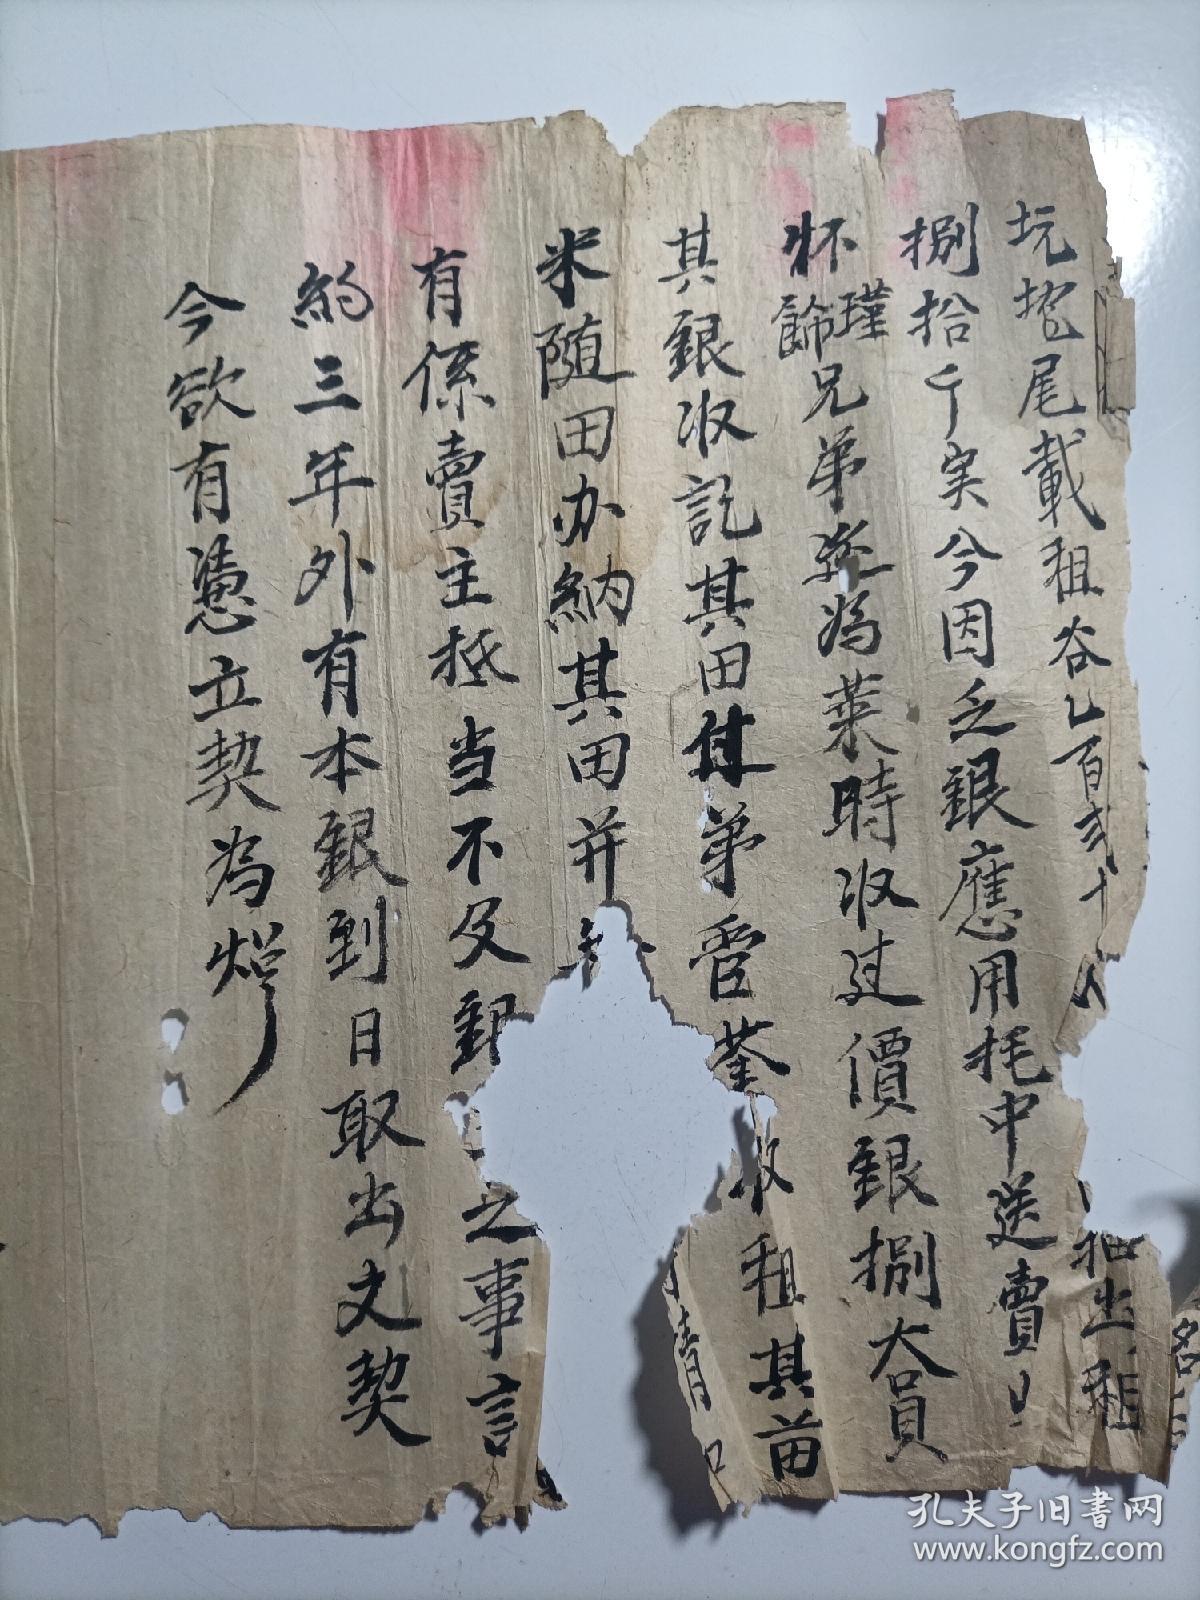 坑垵尾載租谷乙百弍十 抽出租
捌拾斤实今因乏銀應用托中送賣
怀瑾餙兄弟迩為業時收过價銀捌大員
其銀收訖其田付弟管 收租其苗
米随田办納其田并 清
有係賣主抵当不及銀 之事言
約三年外有本銀到日取出文契
今欲有憑立契為炤
孔夫子旧书网
www.kongfz.com